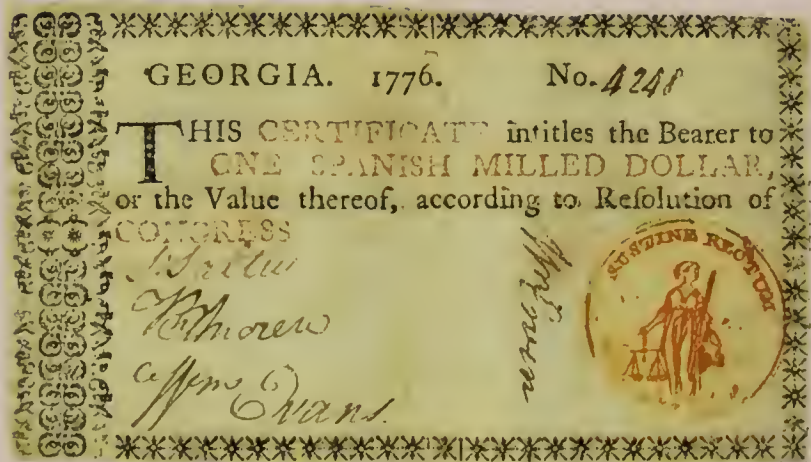 GEORGIA. 1776. No. 4248
THIS CERTIFICATE intitles the Bearer to
ONE SPANISH MILLED DOLLAR,
or the Value thereof, according to Reſolution of
CONGRESS
Wm Evans.
SUSTINE RECTUM